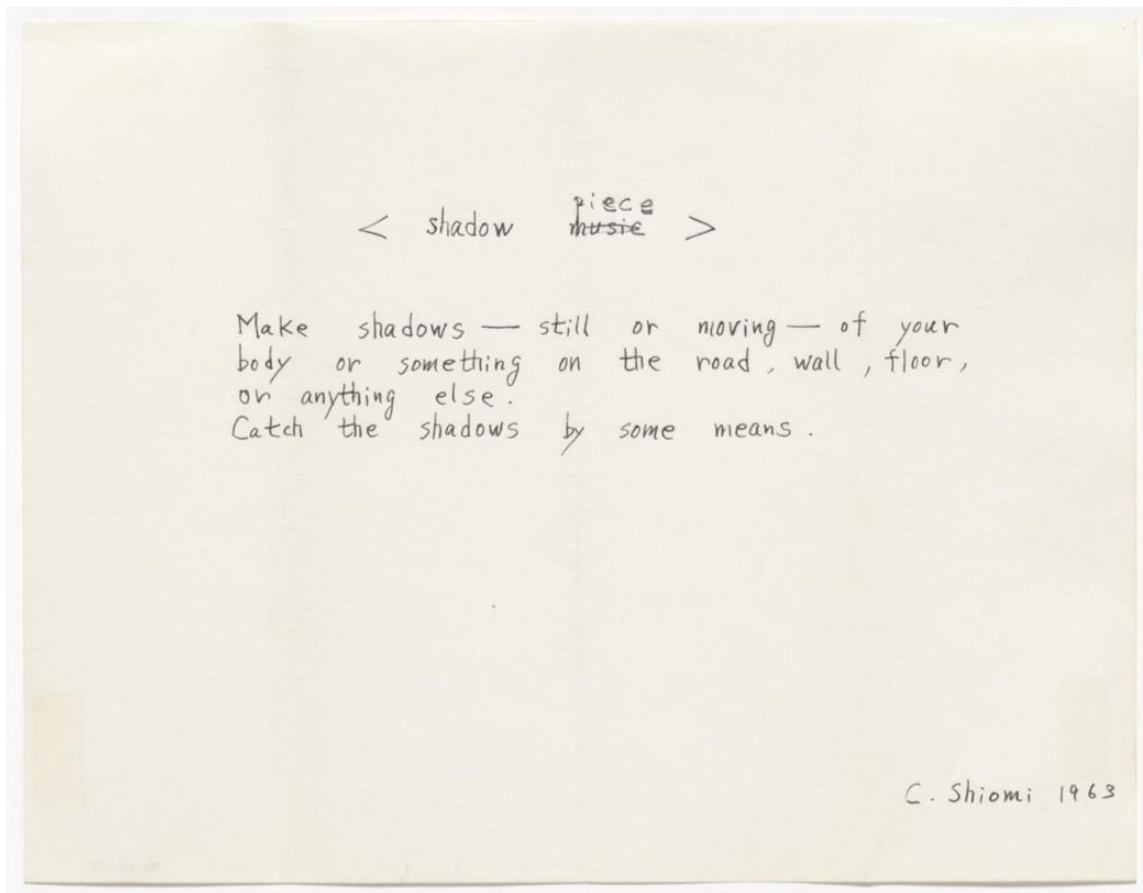 < shadow piece ~~music~~ >
Make shadows — still or moving — of your
body or something on the road, wall, floor,
or anything else.
Catch the shadows by some means.
C. Shiomi 1963